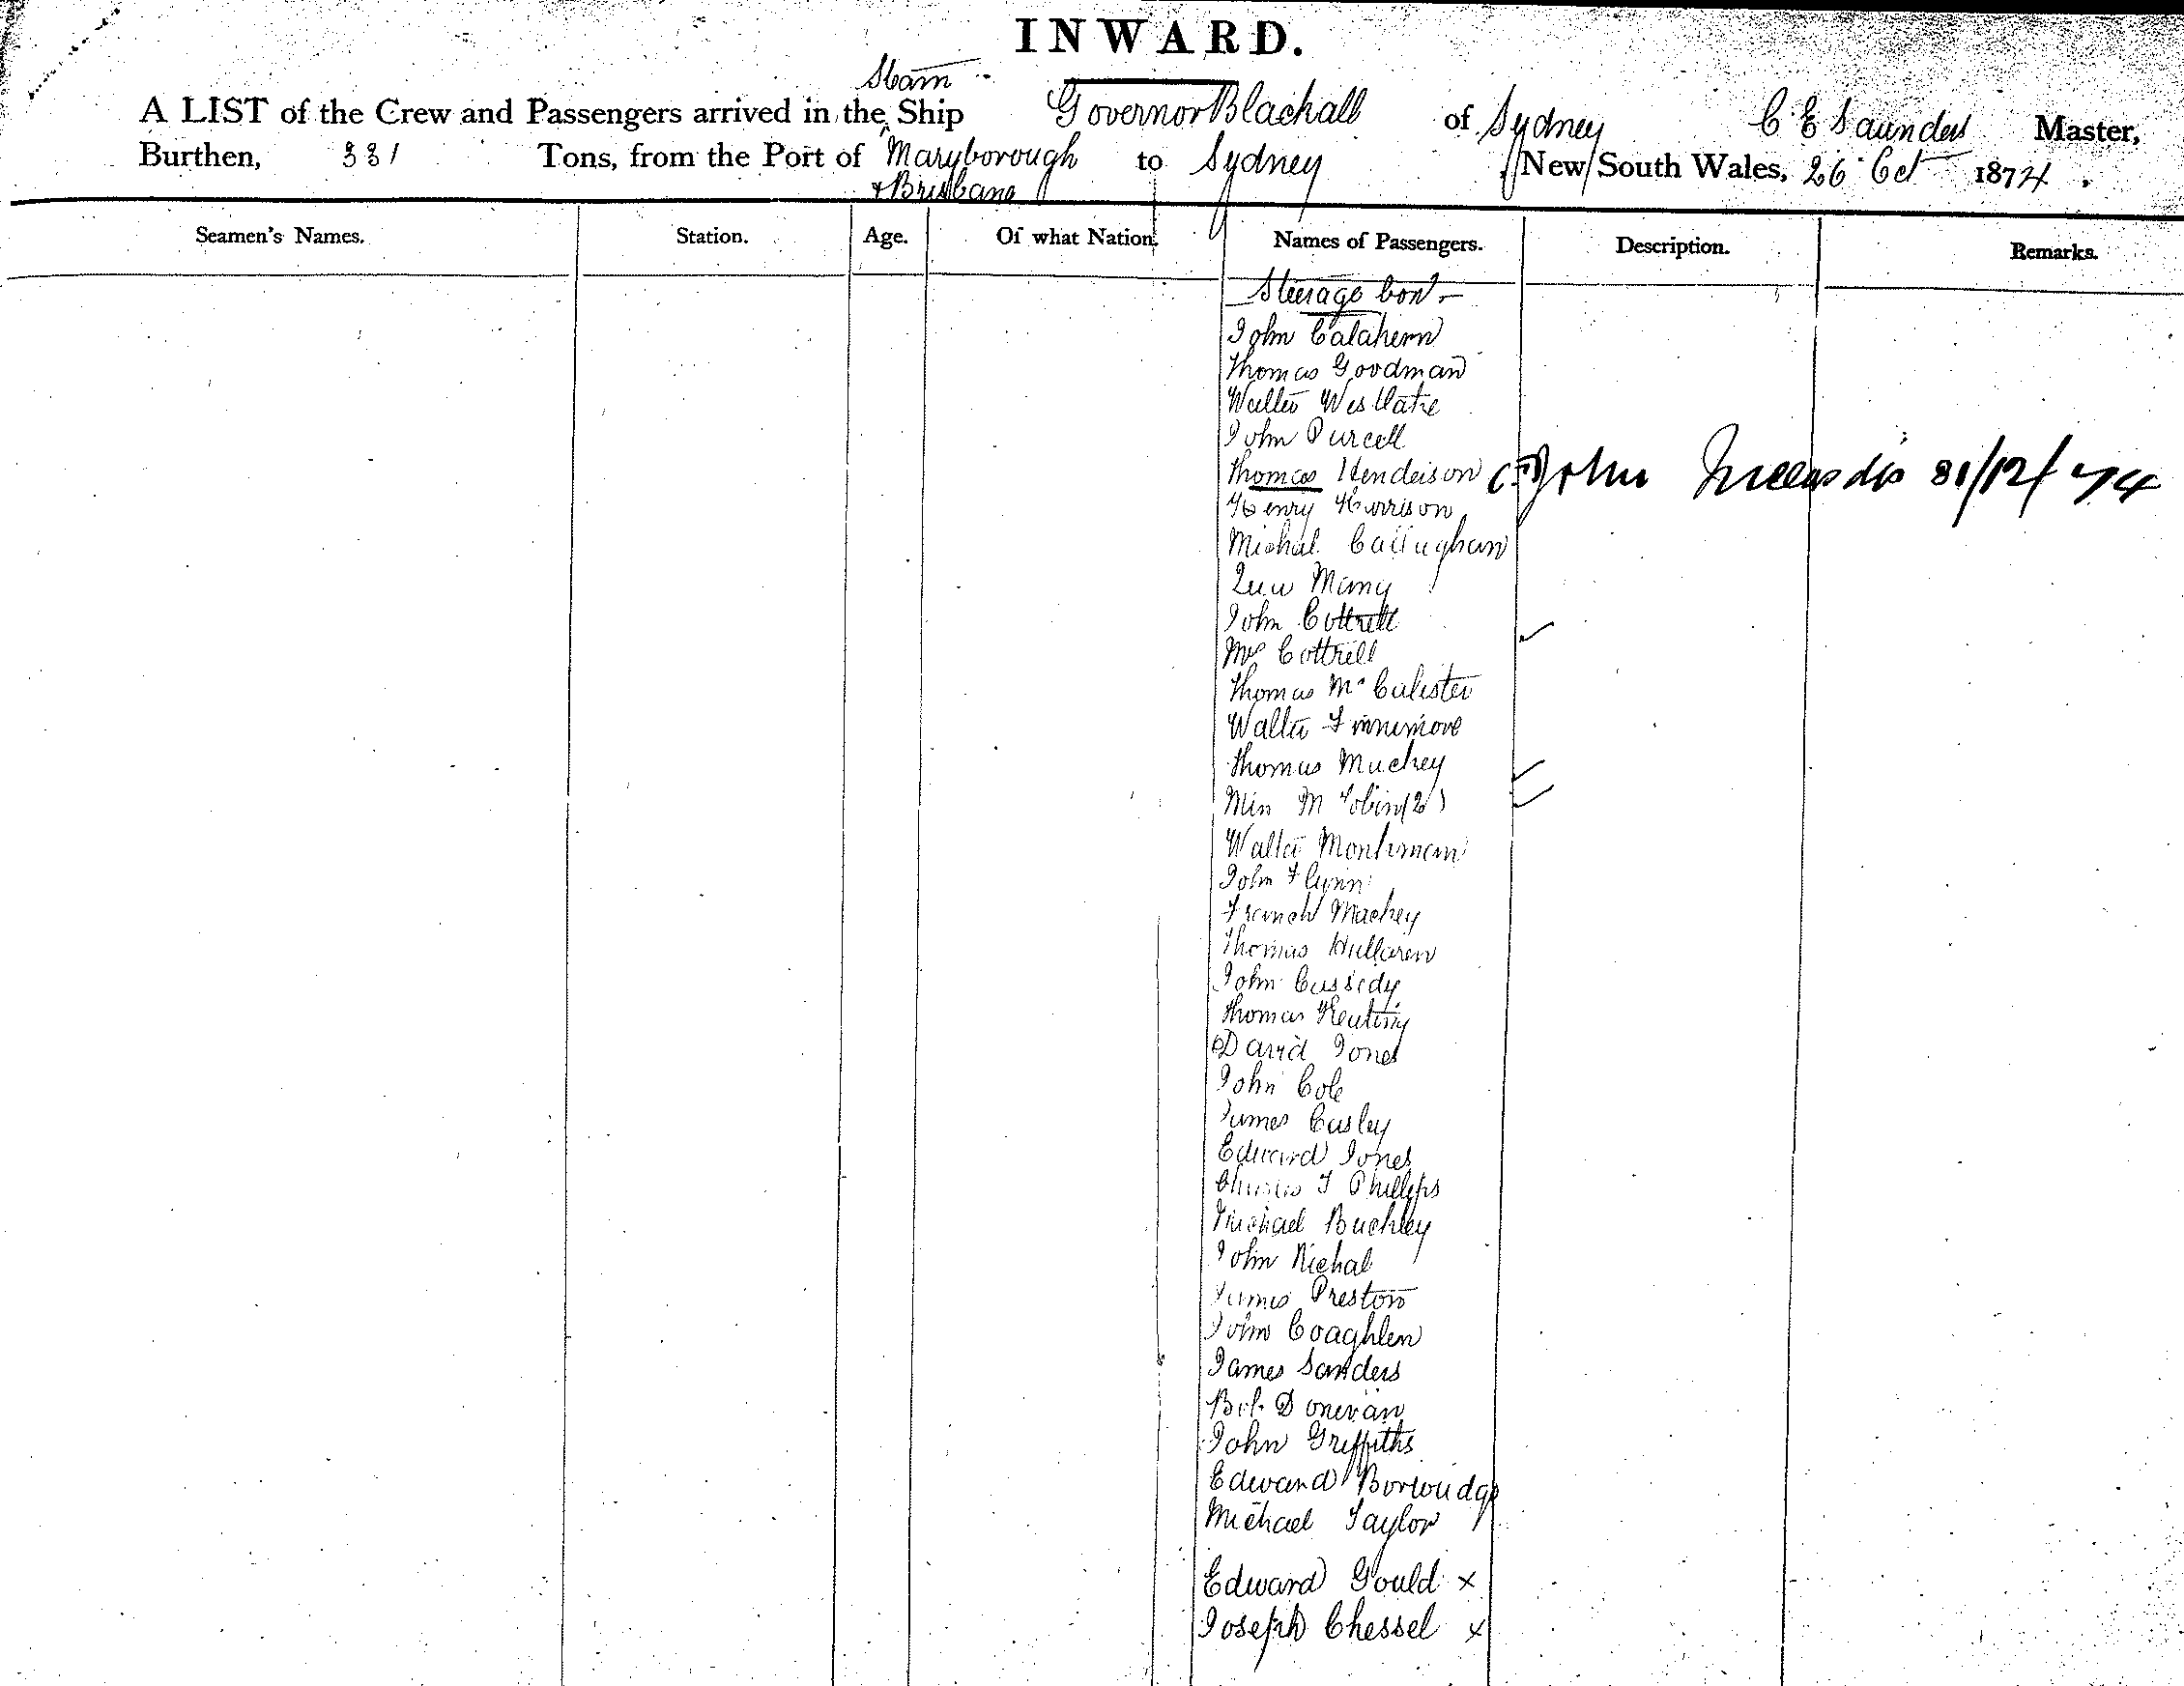 INWARD.
Steam
A LIST of the Crew and Passengers arrived in the Ship Governor Blackall of Sydney C E Saunders Master,
Burthen, 331 Tons, from the Port of Maryborough to Sydney New South Wales, 26 Oct 1874.
& Brisbane
Seamen's Names. Station. Age. Of what Nation. Names of Passengers. Description. Remarks.
Steerage Con
John Calahern
Thomas Goodman
Walter Westlake
John Purcell
Thomas Henderson John 31/12/74
Henry Harrison
Michal Callaghan
Mang
John Cottrell
Mrs Cottrell
Thomas McCalister
Walter Finnimore
Thomas Mackey
Miss M Tobin (2)
Walter
John Flynn
French Mackey
Thomas Hallaren
John Cassidy
Thomas Keating
David Jones
John Cole
James Casley
Edward Jones
Charles J Phillips
Michael Buckley
John Nichal
James Preston
John Coaghlen
James Sanders
Bob Donevan
John Griffiths
Edward
Michael Taylor
Edward Gould x
Joseph Chessel x